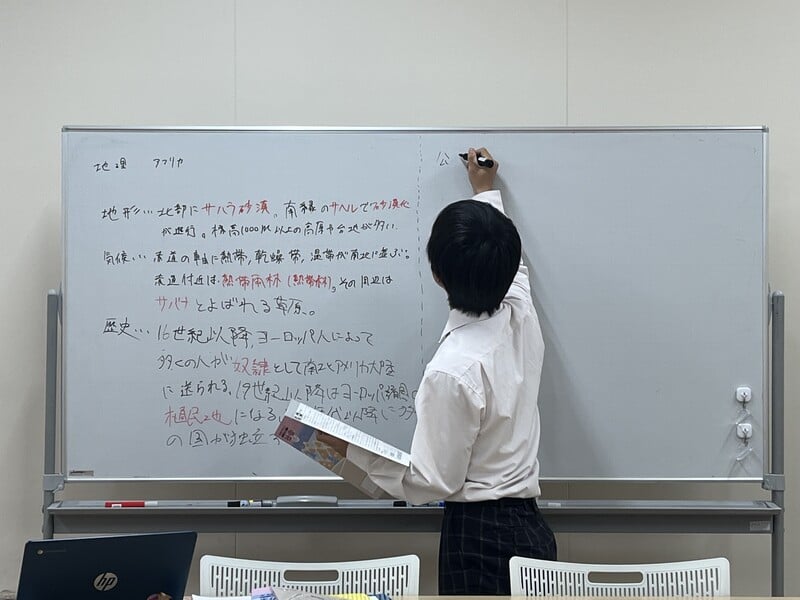 地理 アフリカ
地形… 北部にサハラ砂漠。南縁のサヘルで砂漠化
が進行。標高1000m以上の高原や台地が多い.
気候… 赤道の軸に熱帯,乾燥帯,温帯が南北に並ぶ。
赤道付近は熱帯雨林(熱帯林)。その周辺は
サバナとよばれる草原。
歴史… 16世紀以降,ヨーロッパ人によって
多くの人が奴隷として南北アメリカ大陸
に送られる。19世紀以降はヨーロッパ諸国
植民地になる
の国が独立
公
hp